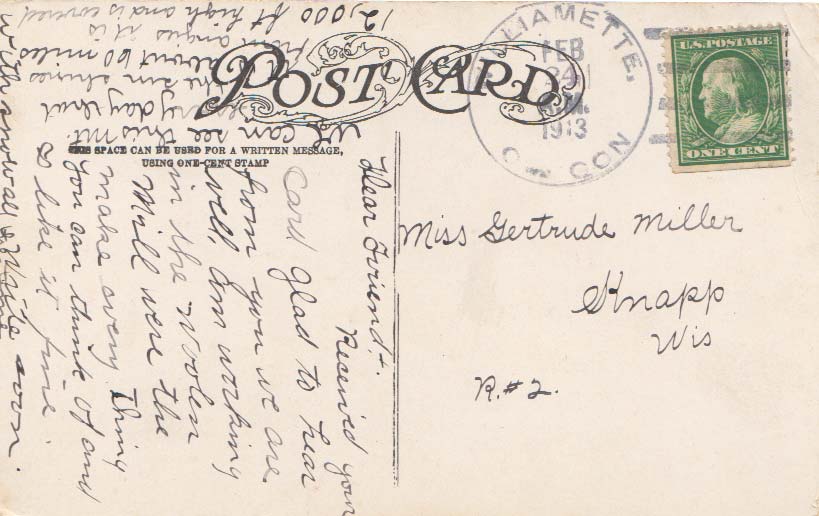 POST CARD
THIS SPACE CAN BE USED FOR A WRITTEN MESSAGE,
USING ONE-CENT STAMP
LIAMETTE,
FEB
1913
U.S. POSTAGE
ONE CENT
Miss Gertrude Miller
Knapp
Wis
R.#2.
Dear Friend:
Received your
card glad to hear
from you we are
well, am working
in the woolen
Mill were the
make every thing
you can think of and
I like it fine.
Write soon.
We can see this mt.
every day that
the sun shines
about 60 miles
from angis it is
12,000 ft high and is covered
with snow all